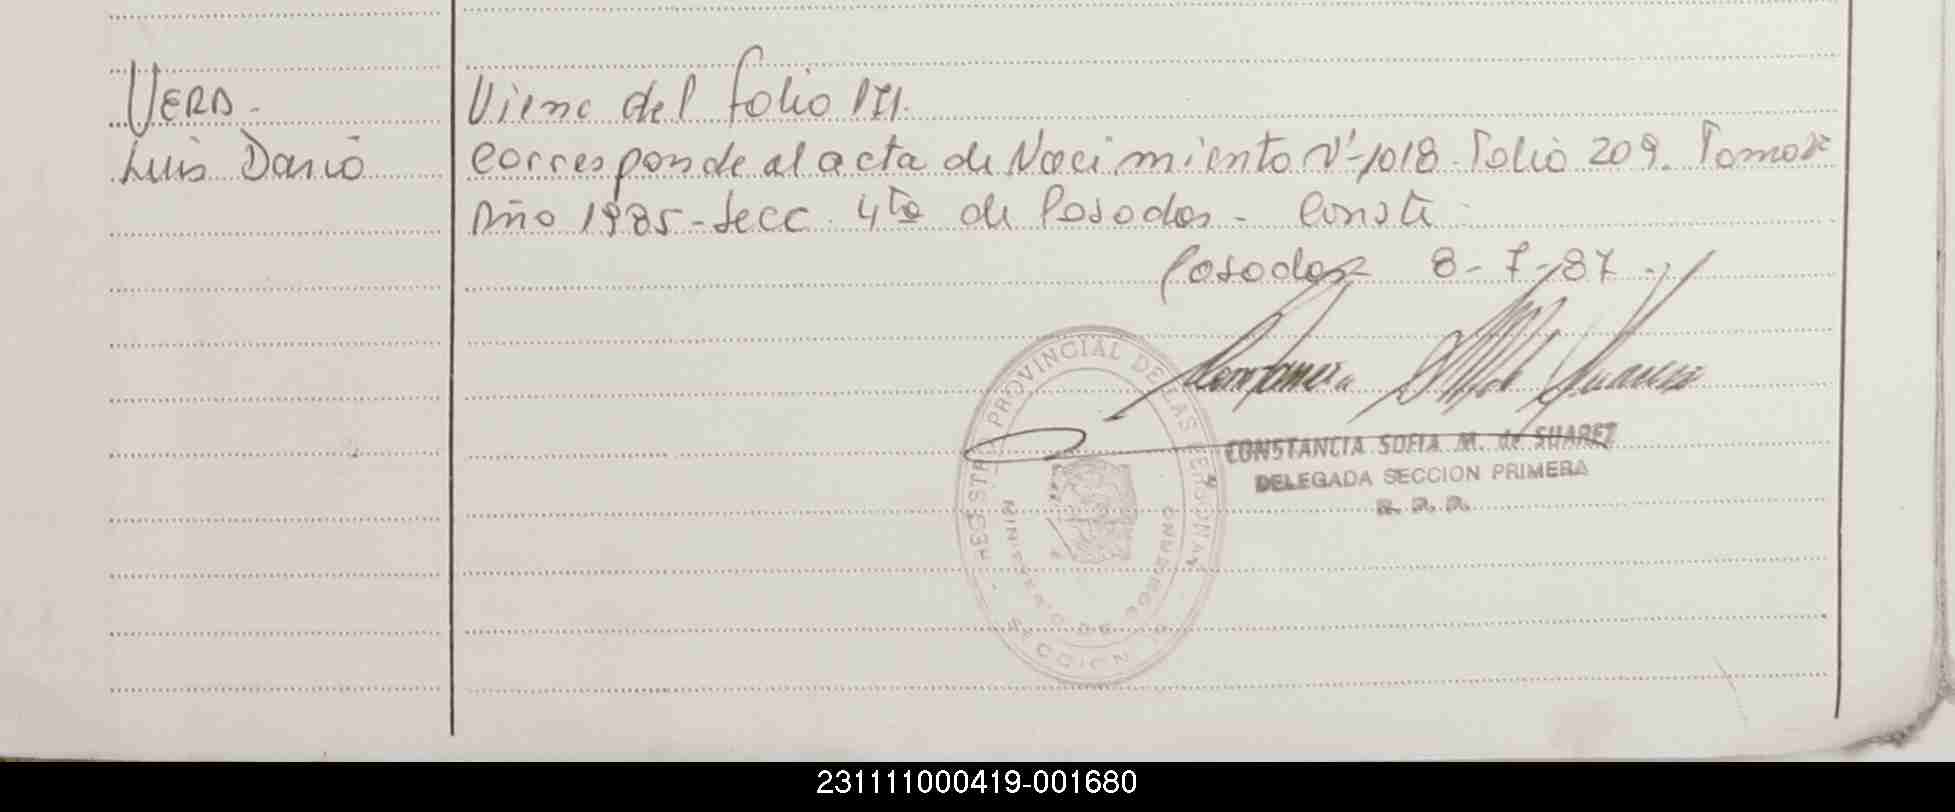 VERA.
Luis Dario
Viene del folio 171.
Corresponde al acta de Nacimiento Nº 1018. Folio 209. Tomo
Año 1985 - Secc. 4ta de Posadas - Conste
Posadas 8-7-87
REGISTRO PROVINCIAL DE LAS PERSONAS
MINISTERIO DE GOBIERNO
SECCION 1a
CONSTANCIA SOFIA M. de SUAREZ
DELEGADA SECCION PRIMERA
R. P. P.
231111000419-001680